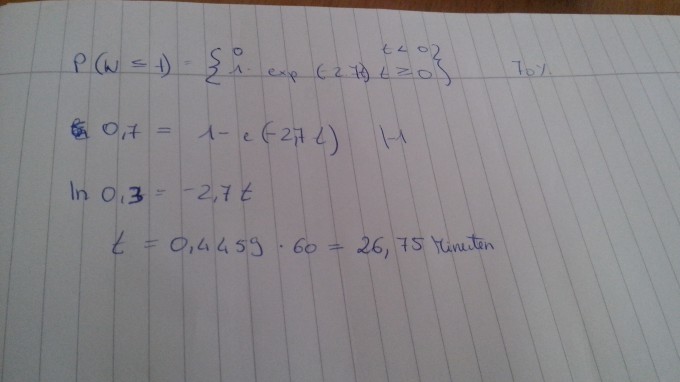 P(W ≤ 1) = { 0 t < 0 }
{ 1- exp (-2,7t) t ≥ 0 } 70%
0,7 = 1 - e(-2,7 t) |-1
ln 0,3 = -2,7 t
t = 0,4459 · 60 = 26,75 Minuten